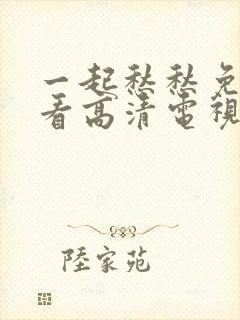 一起愁愁免
看高清電視
陸家苑